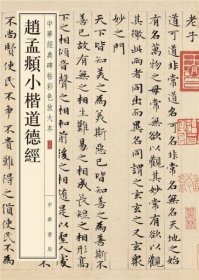 老子
道可道非常道名可名非常名無名天地始
有名萬物之母常無欲以觀其妙常有欲以觀
其徼此兩者同出而異名同謂之玄玄之又玄
妙之門
天下皆知美之為美斯惡已皆知善之為善
善已故有無之相生難易之相成長短之相形
下之相傾音聲之相和前後之相隨是以聖人
中華經典碑帖彩色放大本
趙孟頫小楷道德經
中華書局
不尚賢使民不爭不貴難得之貨使民